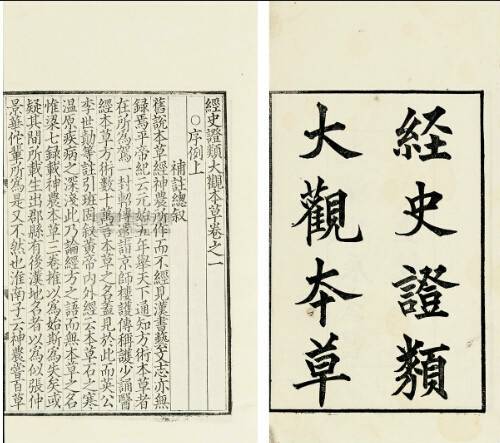 経史證類
大觀本草
經史證類大觀本草卷之一
○序例上
補註總敘
舊說本草經神農所作而不經見漢書藝文志亦無
錄焉平帝紀云元始五年舉天下通知方術本草者
在所為駕一封軺傳遣詣京師樓護傳稱護少誦醫
經本草方術數十萬言本草之名蓋見於此而英公
李世勣等註引班固敘黃帝內外經云本草石之寒
温原疾病之深淺此乃論經方之語而無本草之名
惟梁七録載神農本草三卷推以為始斯為失矣或
疑其間所載生出郡縣有後漢地名者以為似張仲
景華佗輩所為是又不然也淮南子云神農嘗百草